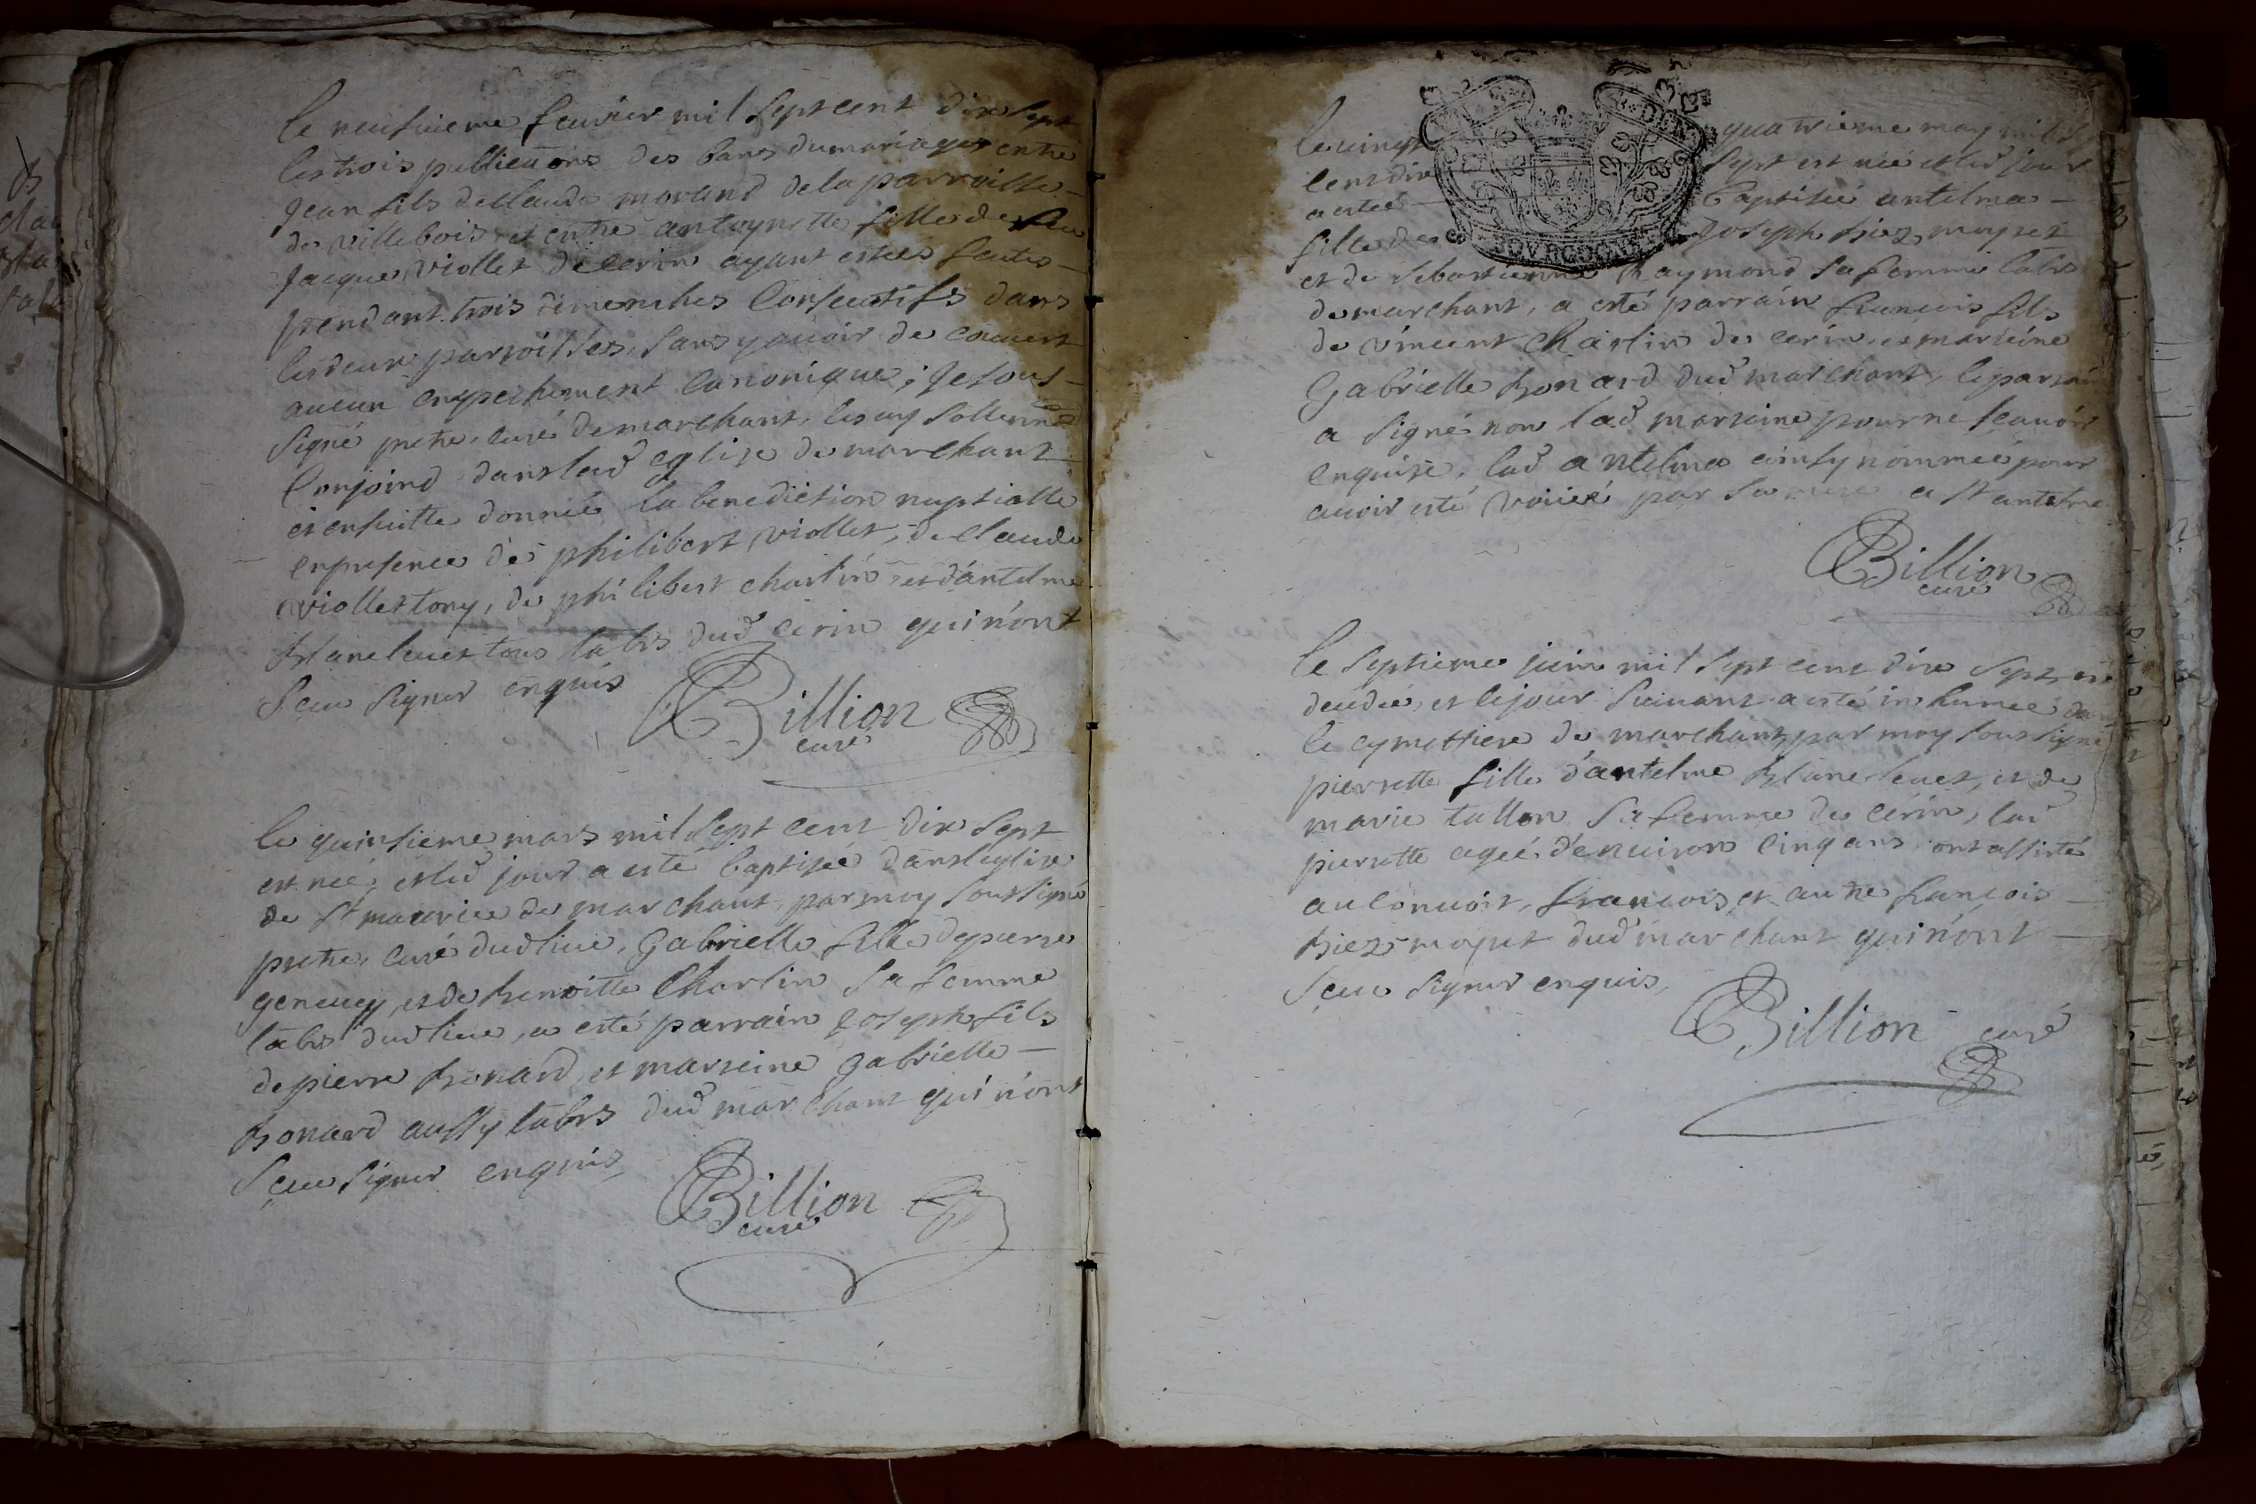 le neufvieme fevrier mil sept cent dix sept
les trois publications des bans du mariage entre
Jean fils de Claude morand de la parroisse
de villebois et entre antoynette fille de feu
Jacque viollet de cerin ayant estées faites
pendant trois dimenches consecutifs dans
les deux parroisses, sans y avoir de couvert
aucun empechement canonique, Je sous-
signé pretre curé de marchant, les ay
conjoind dans lad eglise de marchant
et ensuitte donnée la benediction nuptialle
en presence de philibert viollet, de claude
viollet tony, de philibert charlin et d'antelme
blanc levet tous labrs dud cerin qui n'ont
sceu signer enquis
Billion
curé
le quinsieme mars mil sept cent dix sept
est née, et led jour a esté baptisée dans leglise
de st maurice de marchant, par moy soussigné
pretre, curé dud lieu, gabrielle fille de pierre
genevey, et de benoitte charlin sa femme
labrs dud lieu, a esté parrain Joseph fils
de pierre bonard, et marreine gabrielle
bonard aussy labrs dud marchant qui n'ont
sceu signer enquis,
Billion
curé
le vingt quatrieme may mil
cent dix sept est née et led jour
a estée baptisée antelma
fille de Joseph biez mayset
et de sebastienne Raymond sa femme labrs
de marchant, a esté parrain francois fils
de vincent Charlin de cerin, et marreine
Gabrielle bonard dud marchant, le parrain
a signé non lad marreine pour ne scavoir
enquise, lad antelma ainsy nommée pour
avoir esté par sa mere a st antelme
Billion
curé
DE BOURGOGNE
le septieme juin mil sept cent dix sept, est
decedée, et le jour suivant a esté inhumée dans
le cymettiere de marchant, par moy soussigné
pierrette fille d'antelme blanc levet, et de
marie tallon sa femme de cerin, lad
pierrette agée d'environ cinq ans, ont assisté
au convoit, francois, et autre francois
biez mayset dud marchant qui n'ont
sceu signer enquis,
Billion curé